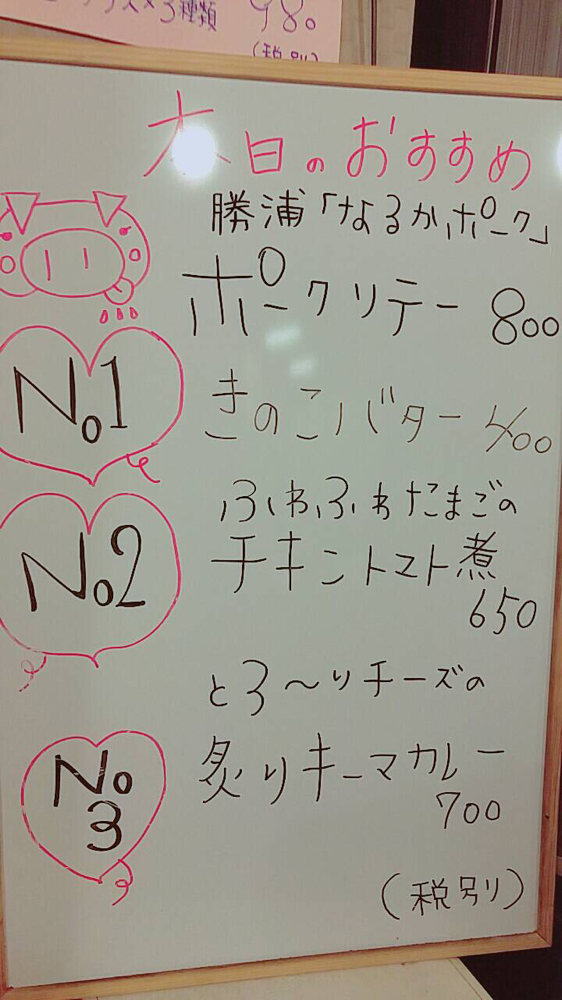 ス×3種類 980
(税別)
本日のおすすめ
勝浦「なるかポーク」
ポークソテー 800
No1 きのこバター 400
ふわふわたまごの
No2 チキントマト煮
650
とろ〜りチーズの
No 炙りキーマカレー
3 700
(税別)